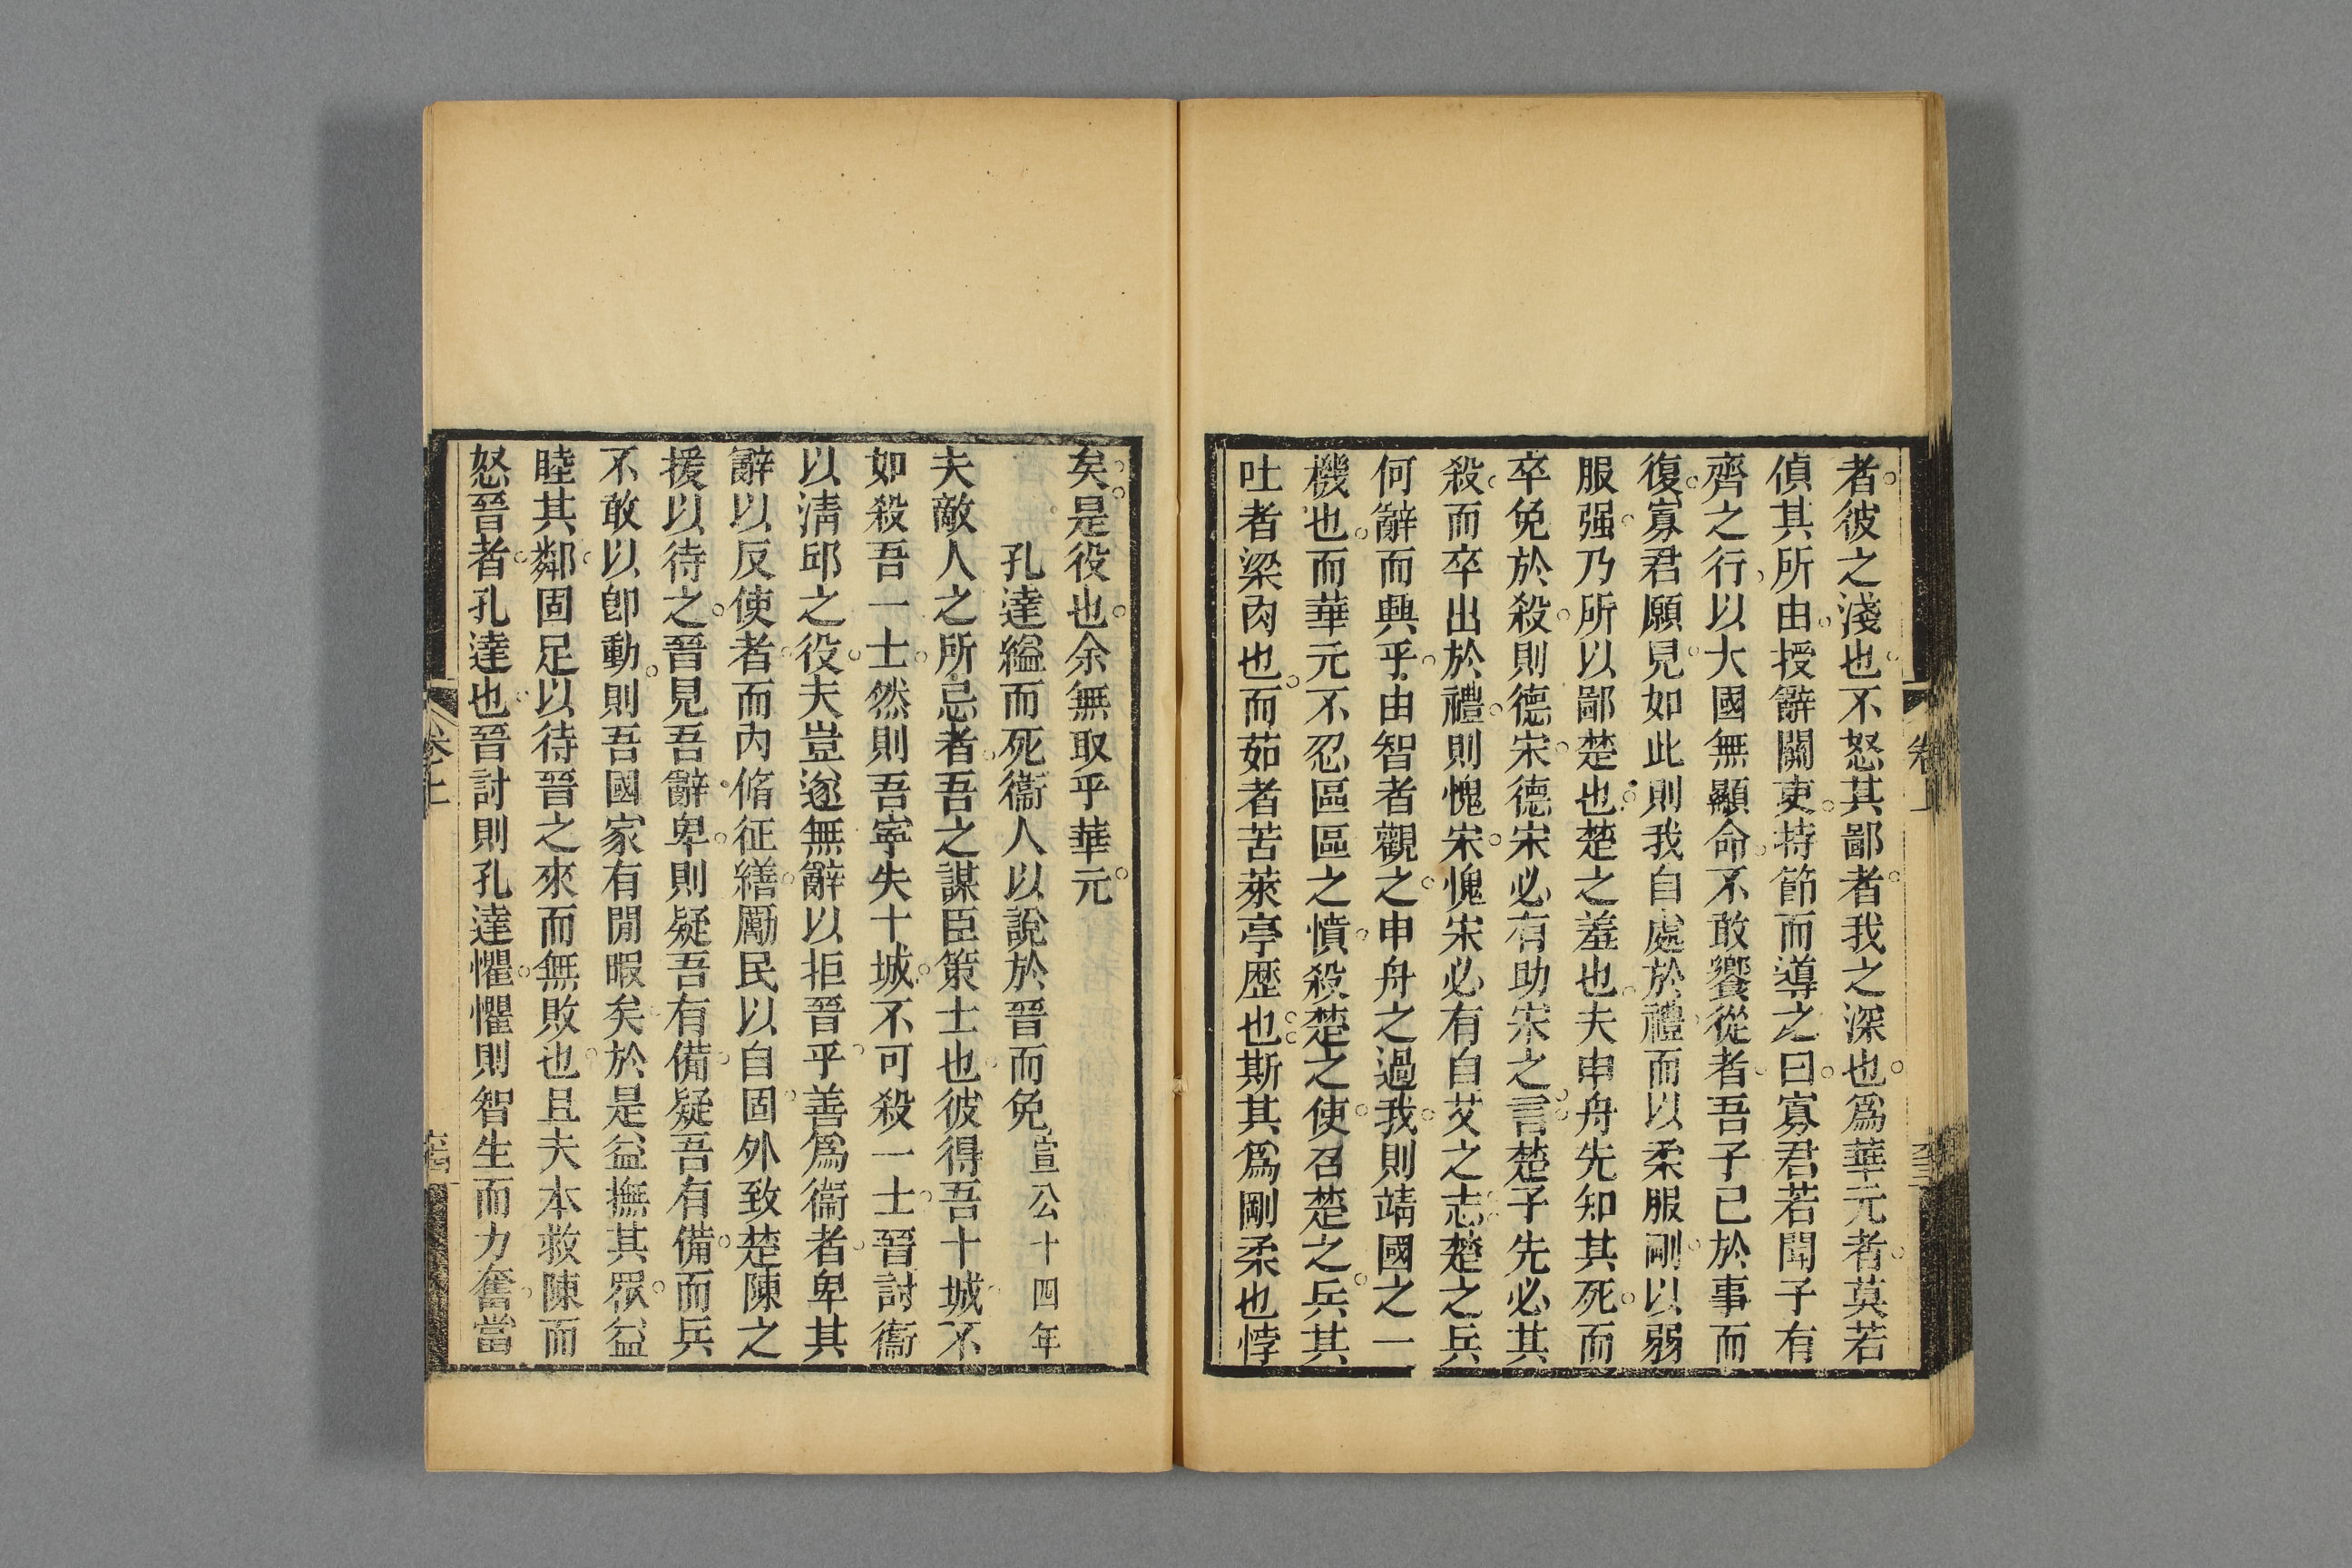 者彼之淺也不怒其鄙者我之深也爲華元者莫若
偵其所由授辭關吏持節而導之曰寡君若聞子有
齊之行以大國無顯命不敢饗從者吾子已於事而
復寡君願見如此則我自處於禮而以柔服剛以弱
服强乃所以鄙楚也楚之羞也夫申舟先知其死而
卒免於殺則德宋德宋必有助宋之言楚子先必其
殺而卒出於禮則愧宋愧宋必有自艾之志楚之兵
何辭而興乎由智者觀之申舟之過我則靖國之一
機也而華元不忍區區之憤殺楚之使召楚之兵其
吐者梁肉也而茹者苦萊亭歷也斯其爲剛柔也悖
卷上
矣是役也余無取乎華元
孔達縊而死衞人以說於晉而免宣公十四年
夫敵人之所忌者吾之謀臣策士也彼得吾十城不
如殺吾一士然則吾寧失十城不可殺一士晉討衞
以淸邱之役夫豈遂無辭以拒晉乎善爲衞者卑其
辭以反使者而內脩征繕勵民以自固外致楚陳之
援以待之晉見吾辭卑則疑吾有備疑吾有備而兵
不敢以卽動則吾國家有閒暇矣於是益撫其眾益
睦其鄰固足以待晉之來而無敗也且夫本救陳而
怒晉者孔達也晉討則孔達懼懼則智生而力奮當
卷上